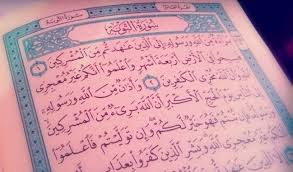 سُورَةُ التَّوْبَةِ
سُورَةُ التَّوْبَةِ
مِّنَ ٱللَّهِ وَرَسُولِهِۦٓ إِلَى ٱلَّذِينَ عَٰهَدتُّم مِّنَ ٱلْمُشْرِكِينَ ١
فِى ٱلْأَرْضِ أَرْبَعَةَ أَشْهُرٍ وَٱعْلَمُوٓا۟ أَنَّكُمْ غَيْرُ مُعْجِزِى
ٱللَّهَ مُخْزِى ٱلْكَٰفِرِينَ ٢ وَأَذَٰنٌ مِّنَ ٱللَّهِ وَرَسُولِهِۦٓ
يَوْمَ ٱلْحَجِّ ٱلْأَكْبَرِ أَنَّ ٱللَّهَ بَرِىٓءٌ مِّنَ ٱلْمُشْرِكِينَ
فَهُوَ خَيْرٌ لَّكُمْ وَإِن تَوَلَّيْتُمْ فَٱعْلَمُوٓا۟
ٱللَّهِ وَبَشِّرِ ٱلَّذِينَ كَفَرُوا۟ بِعَذَابٍ